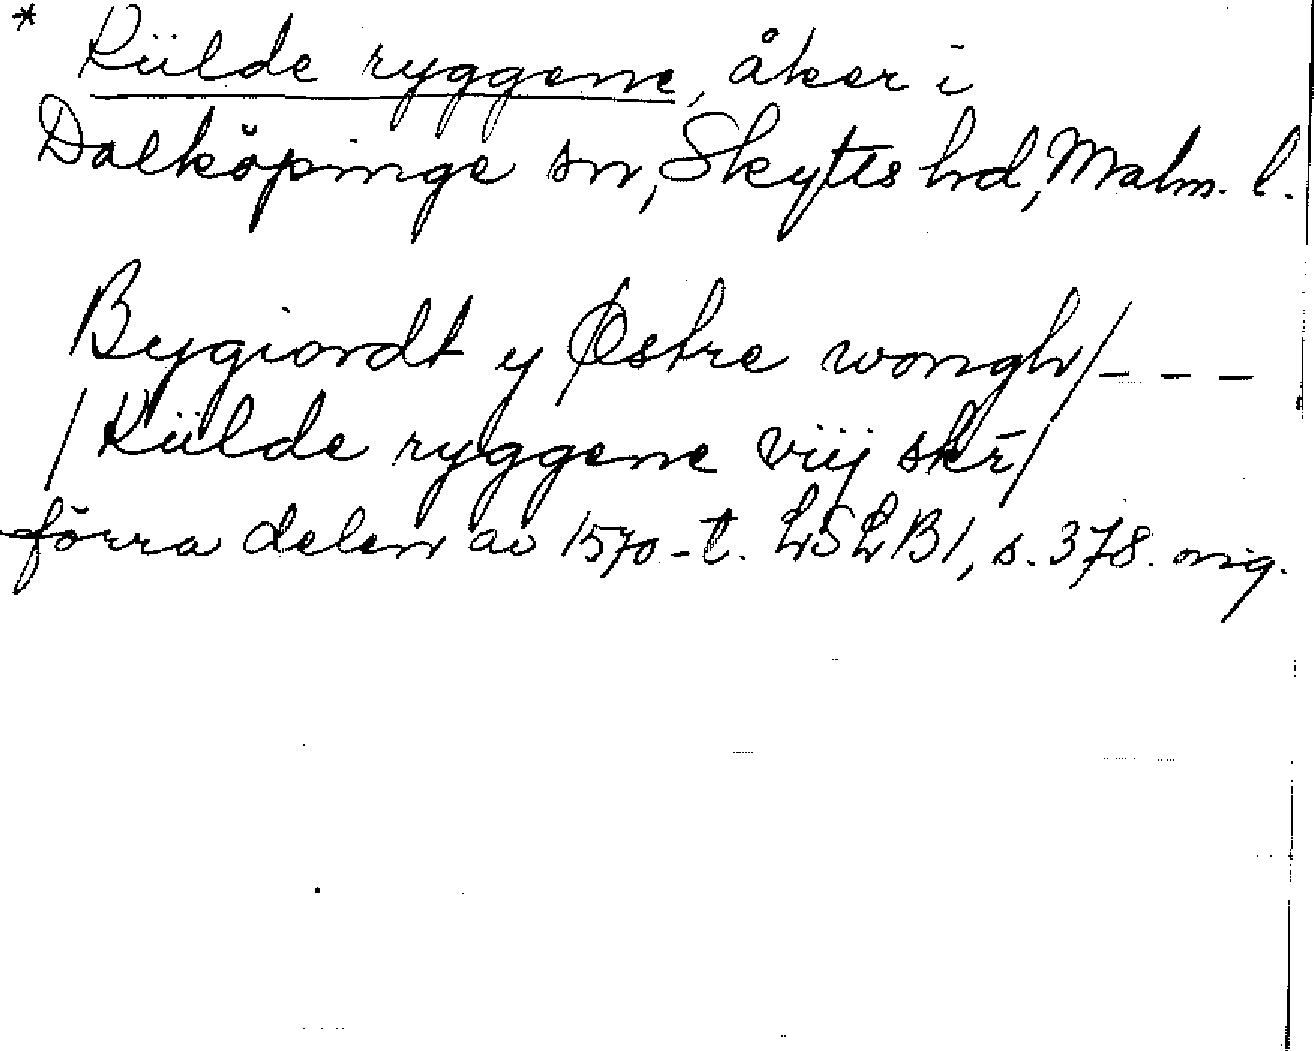 * Külde ryggene, åker i
Dalköpinge sn, Skytts hd, Malm. l.
Bygiordt y Østre wongh/---
/Külde ryggene viij skr̄/
förra delen av 1570-t. LSLB1, s. 378. orig.